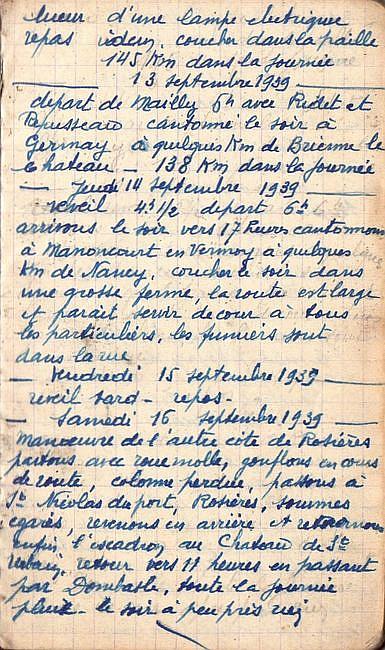 lueur d'une lampe electrique
repas , coucher dans la paille
145 Km dans la journée
13 septembre 1939
depart de Mailly 6h avec Pridet et
Rousseau cantonné le soir à
Germay à quelques Km de Brienne le
Chateau - 138 Km dans la journée
- Jeudi 14 septembre 1939 -
reveil 4h 1/2 depart 6h
arrivons le soir vers 17 heures cantonnons
à Manoncourt en Vermoy à quelques
Km de Nancy, coucher le soir dans
une grosse ferme, la route est large
et parait servir de cour à tous
les particuliers, les fumiers sont
dans la rue
- Vendredi 15 septembre 1939 -
reveil tard - repos -
- Samedi 16 septembre 1939 -
Manoeuvre de l'autre côté de Rosières
partons avec roue molle, gonflons en cours
de route, colonne perdue, passons à
St Nicolas du port, Rosières, sommes
égarés, revenons en arrière et retournons
enfin l'escadron au Chateau de St
Urbain, retour vers 11 heures en passant
par Dombasle, toute la journée
pluie - le soir à peu près rien